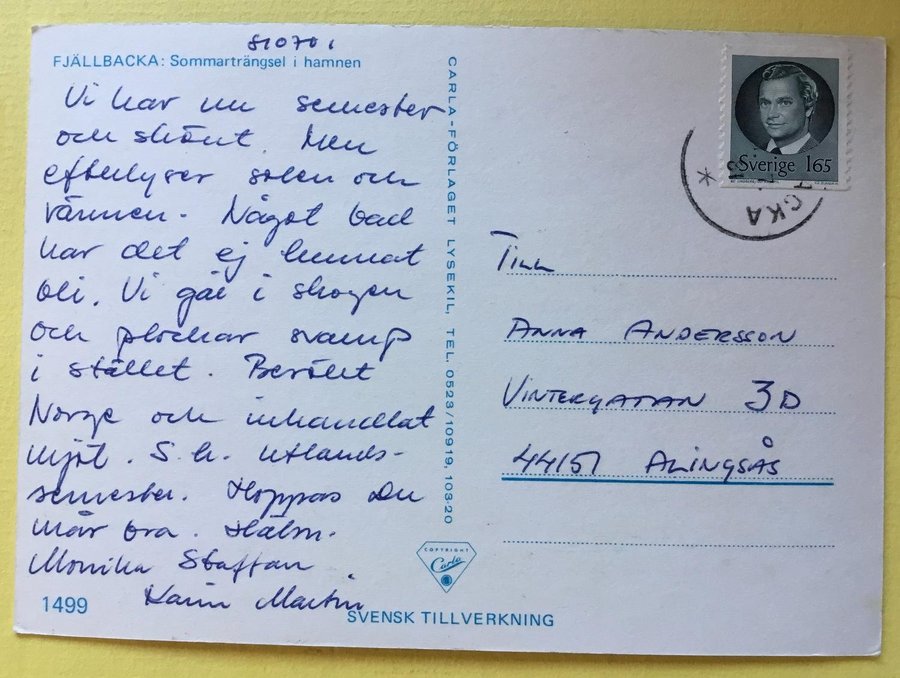 810701
FJÄLLBACKA: Sommarträngsel i hamnen
Vi har nu semester
och skönt. Men
efterlyser solen och
värmen. Något bad
har det ej kunnat
bli. Vi går i skogen
och plockar svamp
i stället. Besökt
Norge och inhandlat
mjöl. S.k. utlands-
semester. Hoppas Du
mår bra. Hälsn.
Monika Staffan
Karin Martin
1499
SVENSK TILLVERKNING
CARLA-FÖRLAGET LYSEKIL, TEL. 0523/10919, 103 20
COPYRIGHT
Carla
Sverige 165
CKA
*
Till
ANNA ANDERSSON
VINTERGATAN 3D
44151 ALINGSÅS